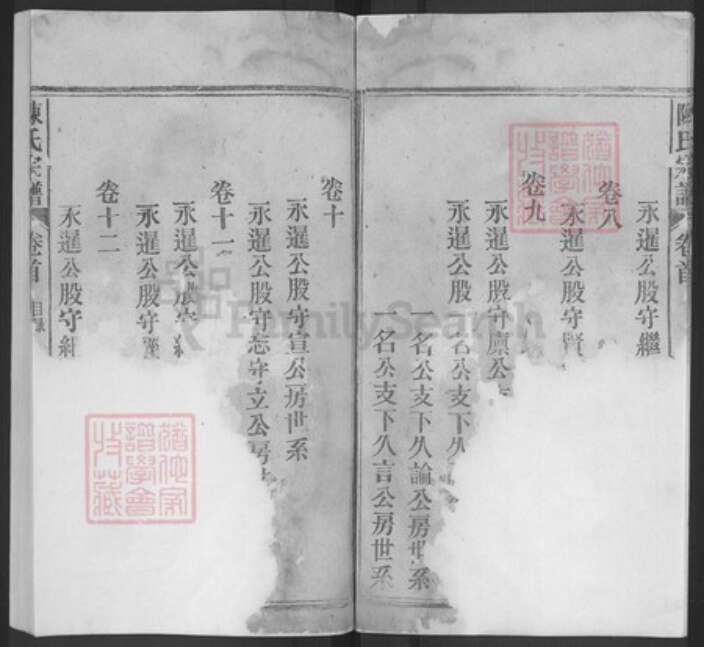 陳氏宗譜 卷首
永暹公股守繼
卷八
永暹公股守賢
卷九
永暹公股守稟公
永暹公股 名公支下久
一名公支下久論公房世系
一名公支下久言公房世系
卷十
永暹公股守宣公房世系
永暹公股守忘守立公房
卷十一
永暹公股守
永暹公股守
卷十二
永暹公股守
陳氏宗譜 卷首 目錄
FamilySearch
譜學會
特藏